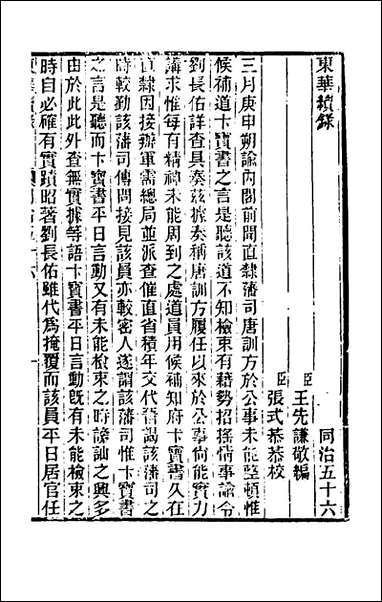 東華續錄
同治五十六
臣王先謙敬編
臣張式恭恭校
三月庚申朔諭內閣前聞直隸藩司唐訓方於公事未能整頓惟
候補道卞寶書之言是聽該道不知檢束有藉勢招搖情事諭令
劉長佑詳查具奏茲據奏稱唐訓方履任以來於公事尙能實力
講求惟每有精神未能周到之處道員用候補知府卞寶書久在
直隸因接辦軍需總局並派查催直省積年交代晉謁該藩司之
時較勤該藩司傳問接見該員亦較密人遂謂該藩司惟卞寶書
之言是聽而卞寶書平日言動又有未能檢束之時謗訕之興多
由於此此外查無實據等語卞寶書平日言動旣有未能檢束之
時自必確有實蹟昭著劉長佑雖代爲掩覆而該員平日居官任